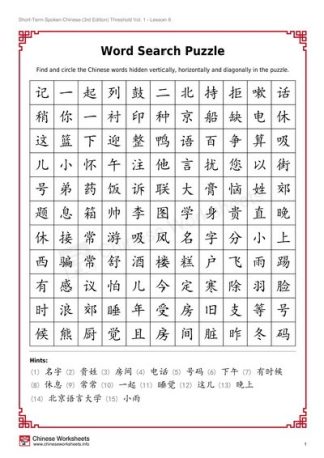 Short-Term Spoken Chinese (3rd Edition) Threshold Vol. 1 - Lesson 6
Word Search Puzzle
Find and circle the Chinese words hidden vertically, horizontally and diagonally in the puzzle.
记 一 起 列 鼓 二 北 持 拒 嗽 话
稍 你 一 衬 印 种 京 船 缺 电 休
这 篮 下 迎 整 鸭 语 百 争 算 吸
儿 小 怀 午 注 他 言 扰 您 以 街
号 弟 药 饭 诉 联 大 膏 恼 姓 郊
题 息 箱 帅 李 图 学 身 贵 直 晚
休 接 常 游 吸 风 名 字 分 小 上
西 骗 常 舒 酒 楼 糕 户 飞 雨 踢
有 感 议 怕 儿 今 定 寒 除 羽 脸
时 浪 郊 睡 年 受 房 旧 支 等 号
候 熊 厨 觉 且 房 间 脏 昨 冬 码
Hints:
(1) 名字 (2) 贵姓 (3) 房间 (4) 电话 (5) 号码 (6) 下午 (7) 有时候
(8) 休息 (9) 常常 (10) 一起 (11) 睡觉 (12) 这儿 (13) 晚上
(14) 北京语言大学 (15) 小雨
Chinese Worksheets
www.chineseworksheets.info
1